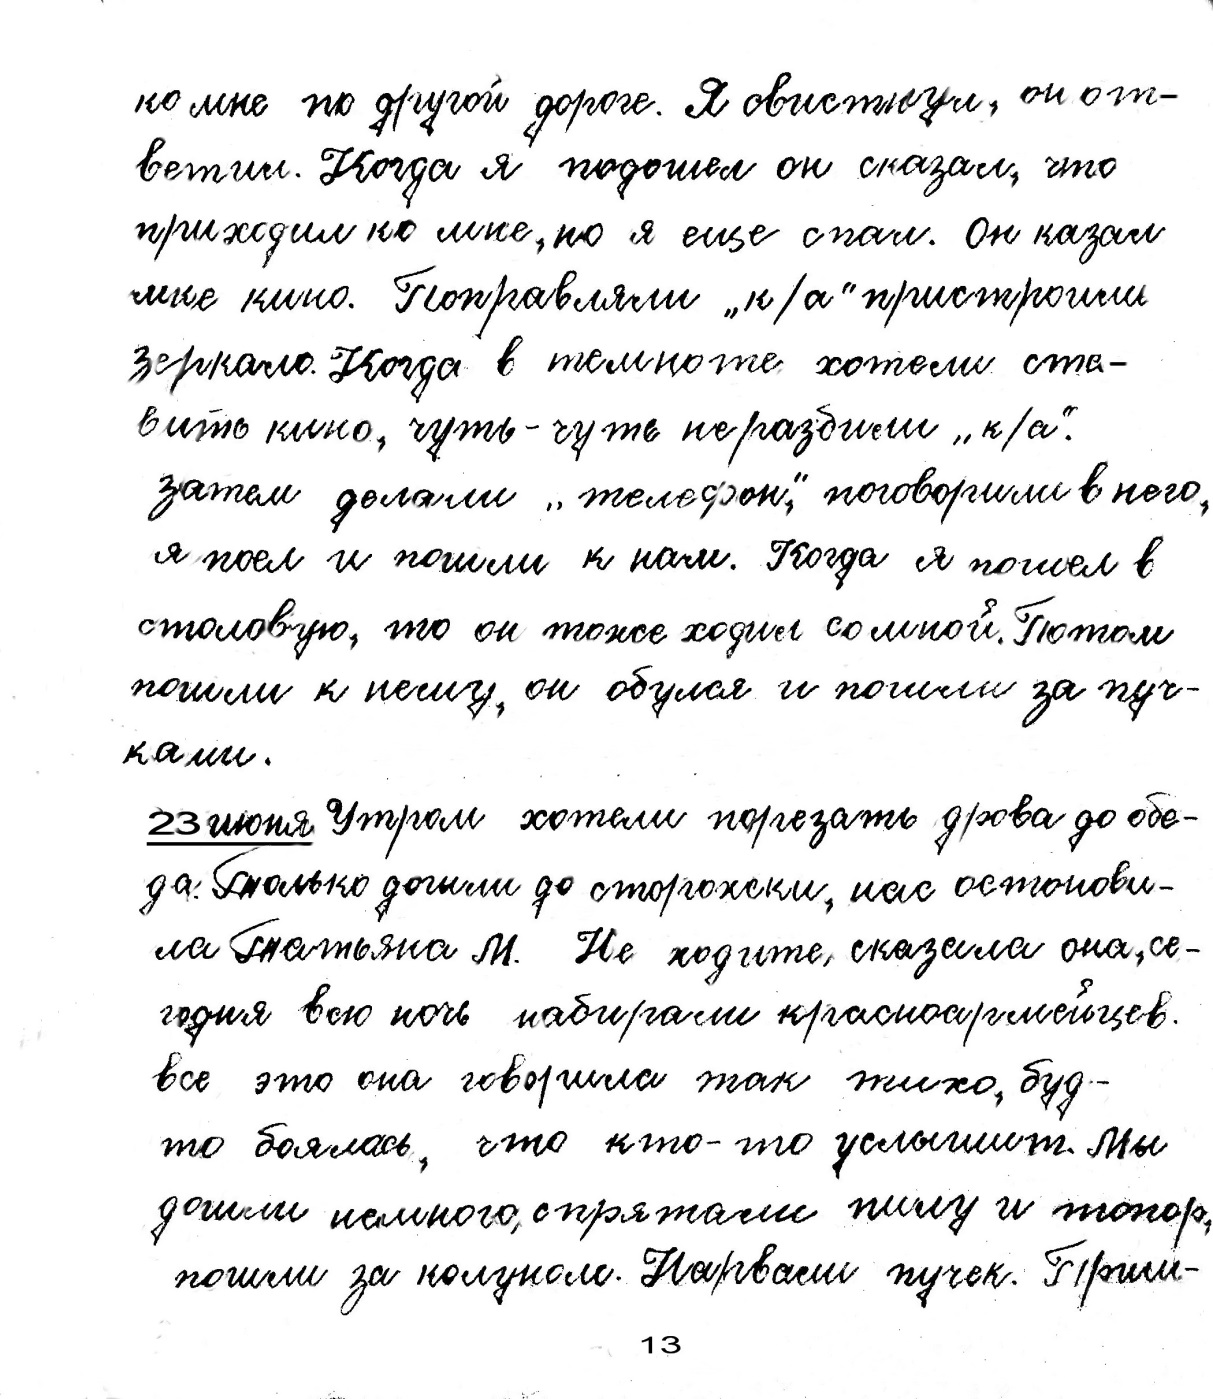 ко мне по другой дороге. Я свистнул, он от-
ветил. Когда я подошел он сказал, что
приходил ко мне, но я еще спал. Он казал
мне кино. Поправляли „к/а" пристроили
зеркало. Когда в темноте хотели ста-
вить кино, чуть-чуть не разбили „к/а".
затем делали „телефон", поговорили в него,
я поел и пошли к нам. Когда я пошел в
столовую, то он тоже ходил со мной. Потом
пошли к нему, он обулся и пошли за пуч-
ками.
23 июня Утром хотели порезать дрова до обе-
да. Только дошли до сторожски, нас остонови-
ла Татьяна М. Не ходите, сказала она, се-
годня всю ночь набирали красноармейцев.
все это она говорила так тихо, буд-
то боялась, что кто-то услышит. Мы
дошли немного, спрятали пилу и топор,
пошли за колуном. Нарвали пучек. Приш-
13